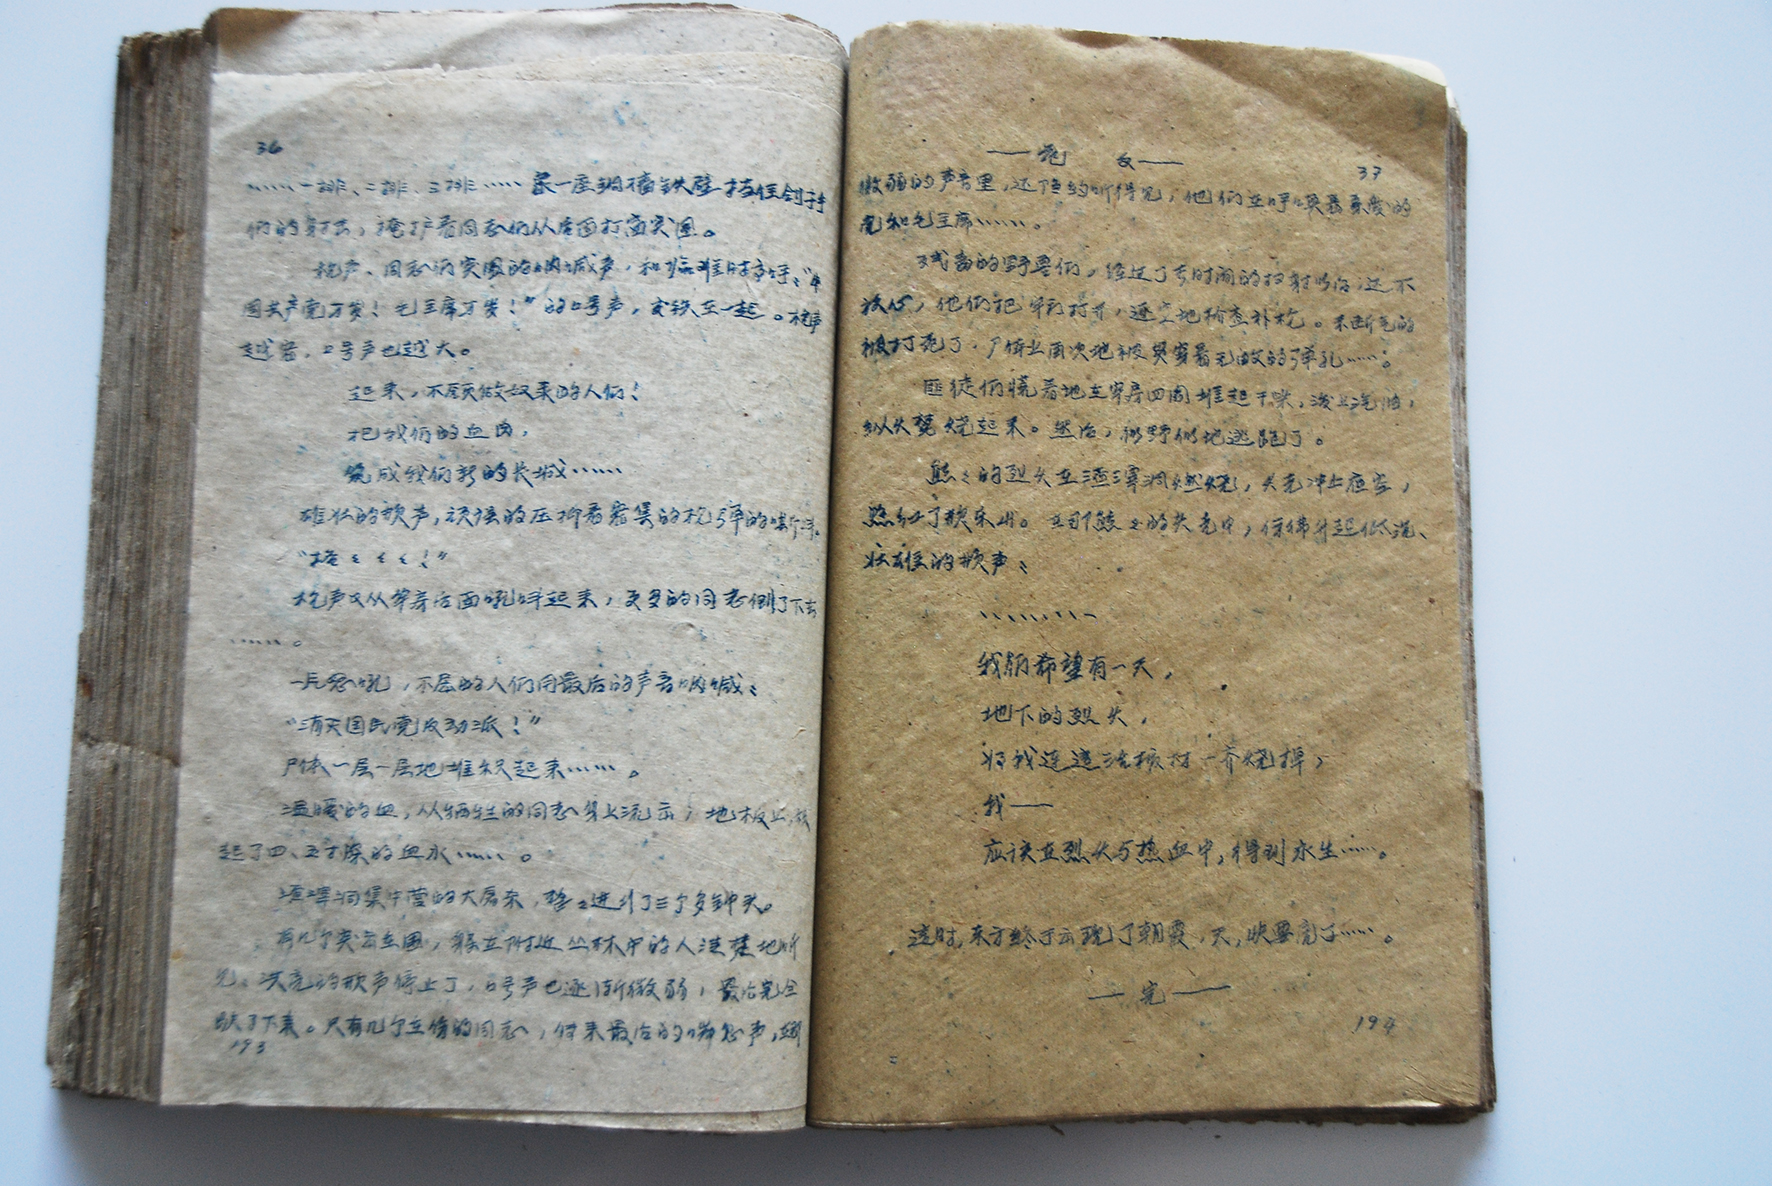 36
……一排、二排、三排……象一座铜墙铁壁挡住刽子手
们的射击，掩护着同志们从后面打窗突围。
枪声、同志们突围的呐喊声，和临难时高呼：“中
国共产党万岁！毛主席万岁！”的口号声，交织在一起。枪声
越密，口号声也越大。
起来，不愿做奴隶的人们！
把我们的血肉，
筑成我们新的长城……
雄壮的歌声，顽强的压抑着密集的枪弹的嘶叫。
“格ㄑㄑㄑ！”
枪声又从牢房后面吼叫起来，更多的同志倒了下去
……。
一片怒吼，不屈的人们用最后的声音呐喊：
“消灭国民党反动派！”
尸体一层一层地堆积起来……。
温暖的血，从牺牲的同志身上流出，地板上，
起了四、五寸深的血水……。
渣滓洞集中营的大屠杀，整ㄑ进行了三个多钟头。
有几个突出重围，躲在附近丛林中的人清楚地听
见：洪亮的歌声停止了，口号声也逐渐微弱，最后完全
默了下来。只有几个立伤的同志，付来最后的嘶怒声，
193
——死 友——
37
微弱的声音里，还隐约听得见，他们在呼唤着亲爱的
党和毛主席……。
残毒的野兽们，经过了长时间的扫射以后，还不
放心，他们把牢打开，逐室地检查补枪。未断气的
被打死了，尸体上再次地被贯穿着无数的弹孔……。
匪徒们绕着地在牢房四周堆起干柴，浇上汽油，
纵火焚烧起来。然后，狼狈地逃跑了。
熊ㄑ的烈火在渣滓洞燃烧，火光冲上夜空，
照红了歌乐山。在那熊ㄑ的火光中，仿佛升起低沉、
壮雄的歌声：
………
我们希望有一天，
地下的烈火，
将我连这活棺材一齐烧掉，
我——
应该在烈火与热血中，得到永生……。
这时，东方终于出现了朝霞，天，快要亮了……。
——完——
194